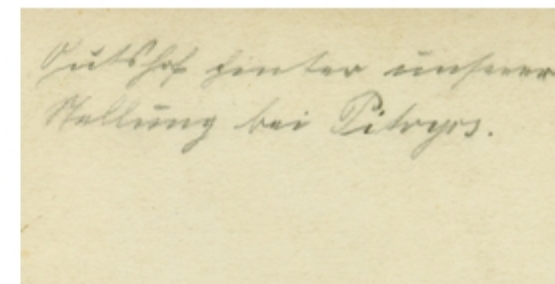 Gutshof hinter unserer
Stellung bei